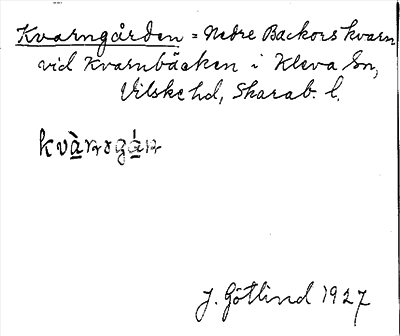 Kvarngården = Nedre Backors kvarn
vid Kvarnbäcken i Kleva sn,
Vilske hd, Skarab. l.
J. Götlind 1927